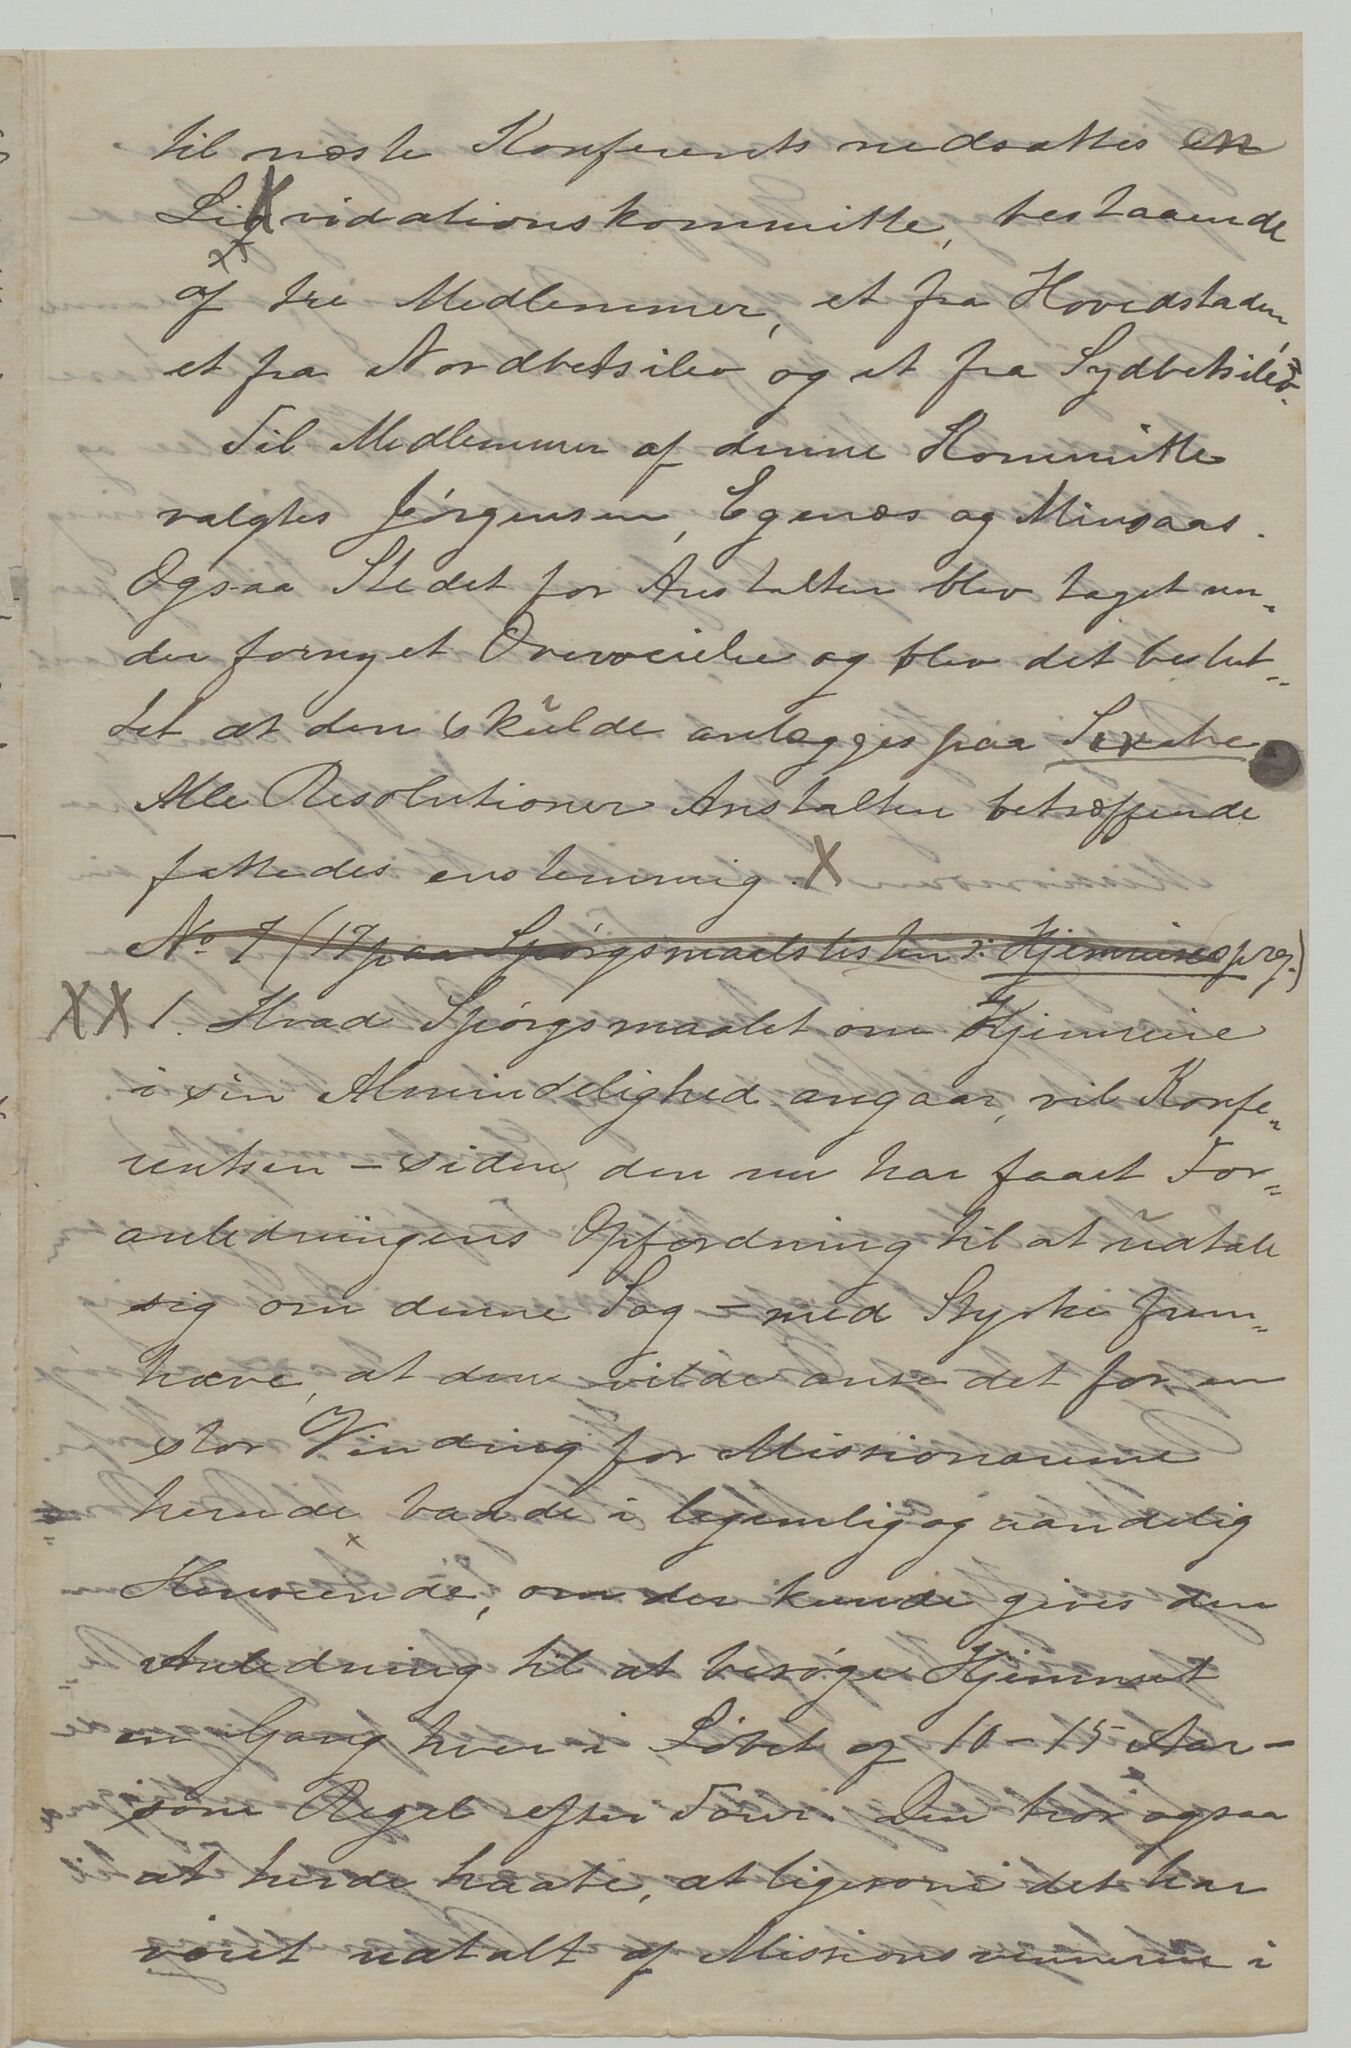 til næste Konferents nedsattes en
Likvidationskommitte, bestaaende
af tre Medlemmer, et fra Hovedstaden,
et fra Nordbetsileo og et fra Sydbetsileo.
Til Medlemmer af denne Kommitte
valgtes Jørgensen, Egenæs og Minsaas.
Ogsaa Stedet for Anstalten blev taget un-
der fornyet Overveielse og blev det beslut-
tet at den skulde anlægges paa Sirabe
Alle Resolutioner Anstalten betræffende
fattedes enstemmig. X
No 7 (17 paa Spørgsmaalslisten): Hjemreisesprg.)
XX 1. Hvad Spørgsmaalet om Hjemreise
i sin Almindelighed angaar, vil Konfe-
rentsen – siden den nu har faaet For-
anledningens Opfordning til at udtale
sig om denne Sag – med Styrke frem-
hæve, at den vilde anse det for en
stor Vinding for Missionærerne
herude baade i legemlig og aandelig
Henseende, om der kunde gives dem
Anledning til at besøge Hjemmet
en Gang hver i Løbet af 10–15 Aar –
som Regel efter Tour. Den tror ogsaa
at turde haabe, at ligesom det har
været udtalt af Missionsvennerne i